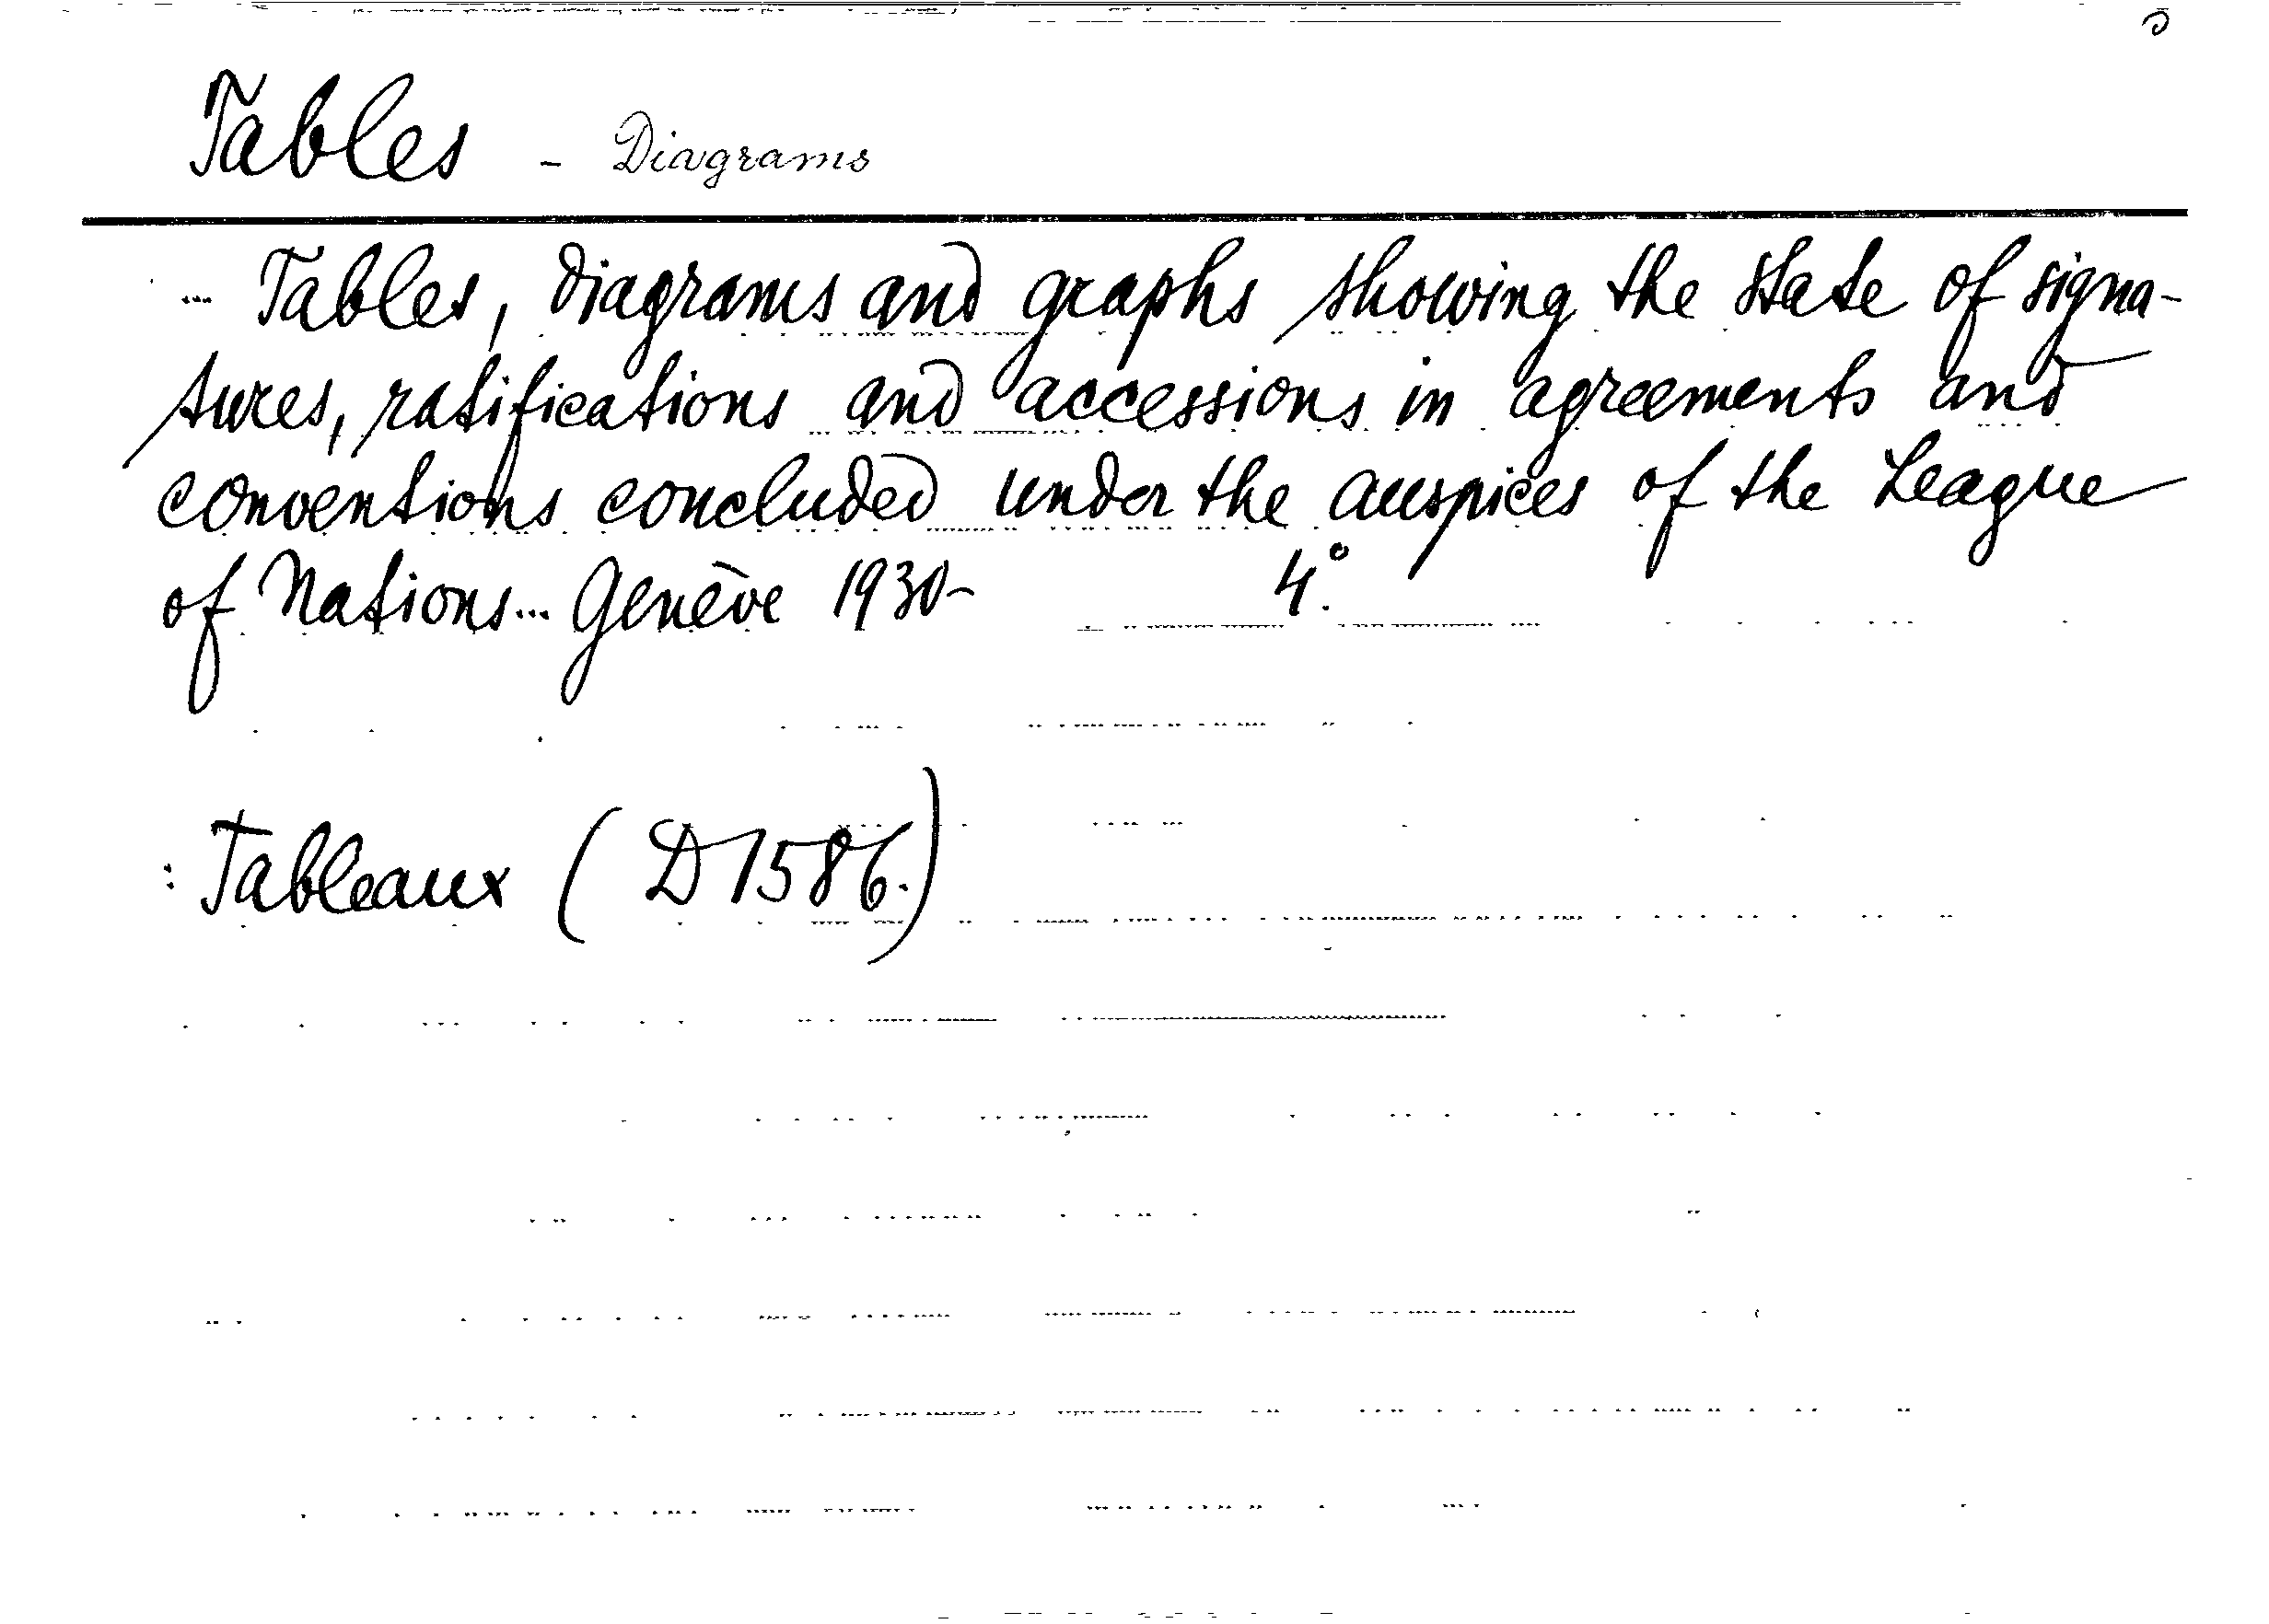 Tables - Diagrams
... Tables, diagrams and graphs showing the state of signa-
tures, ratifications and accessions in agreements and
conventions concluded under the auspices of the League
of Nations... Genève 1930- 4°.
: Tableaux (D 1586.)